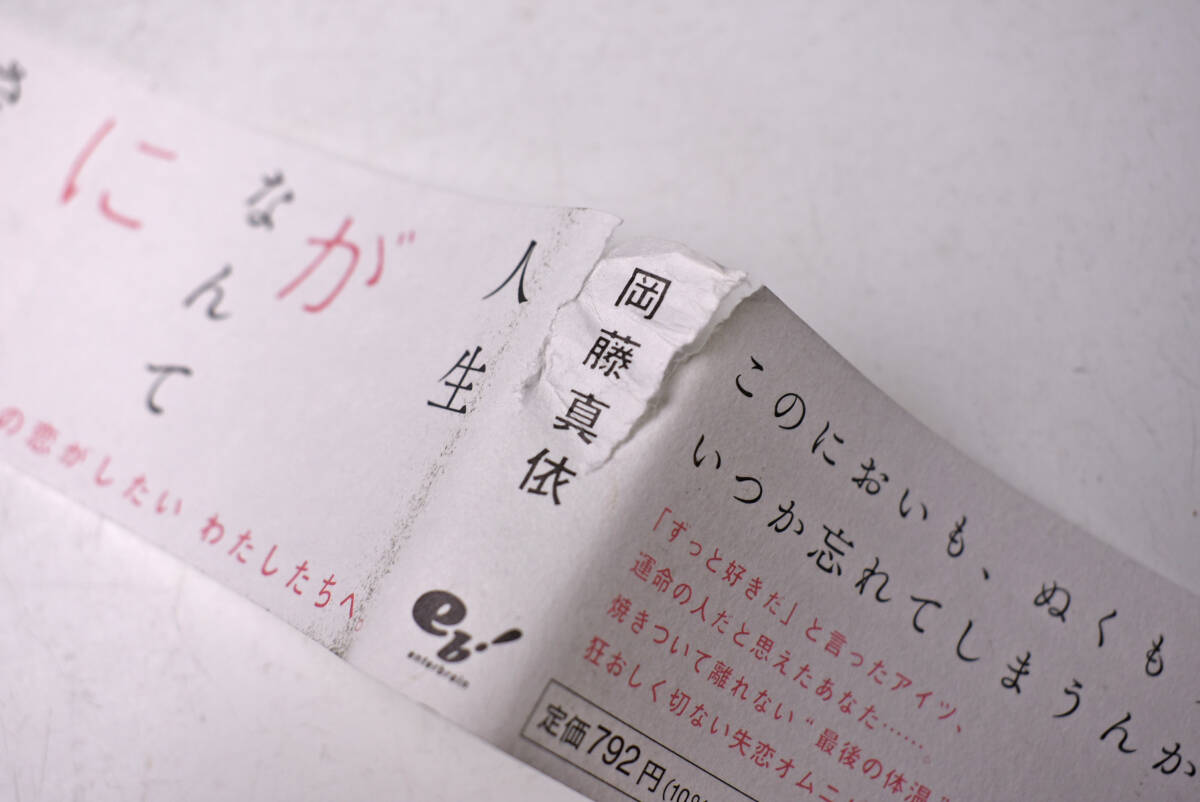 さ
に
なんて
が
人生
の恋がしたい わたしたちへ。
岡藤真依
eb!
enterbrain
このにおいも、ぬくも
いつか忘れてしまうんか
「ずっと好きだ」と言ったアイツ、
運命の人だと思えたあなた……。
焼きついて離れない“最後の体温”
狂おしく切ない失恋オムニ
定価792円(10%